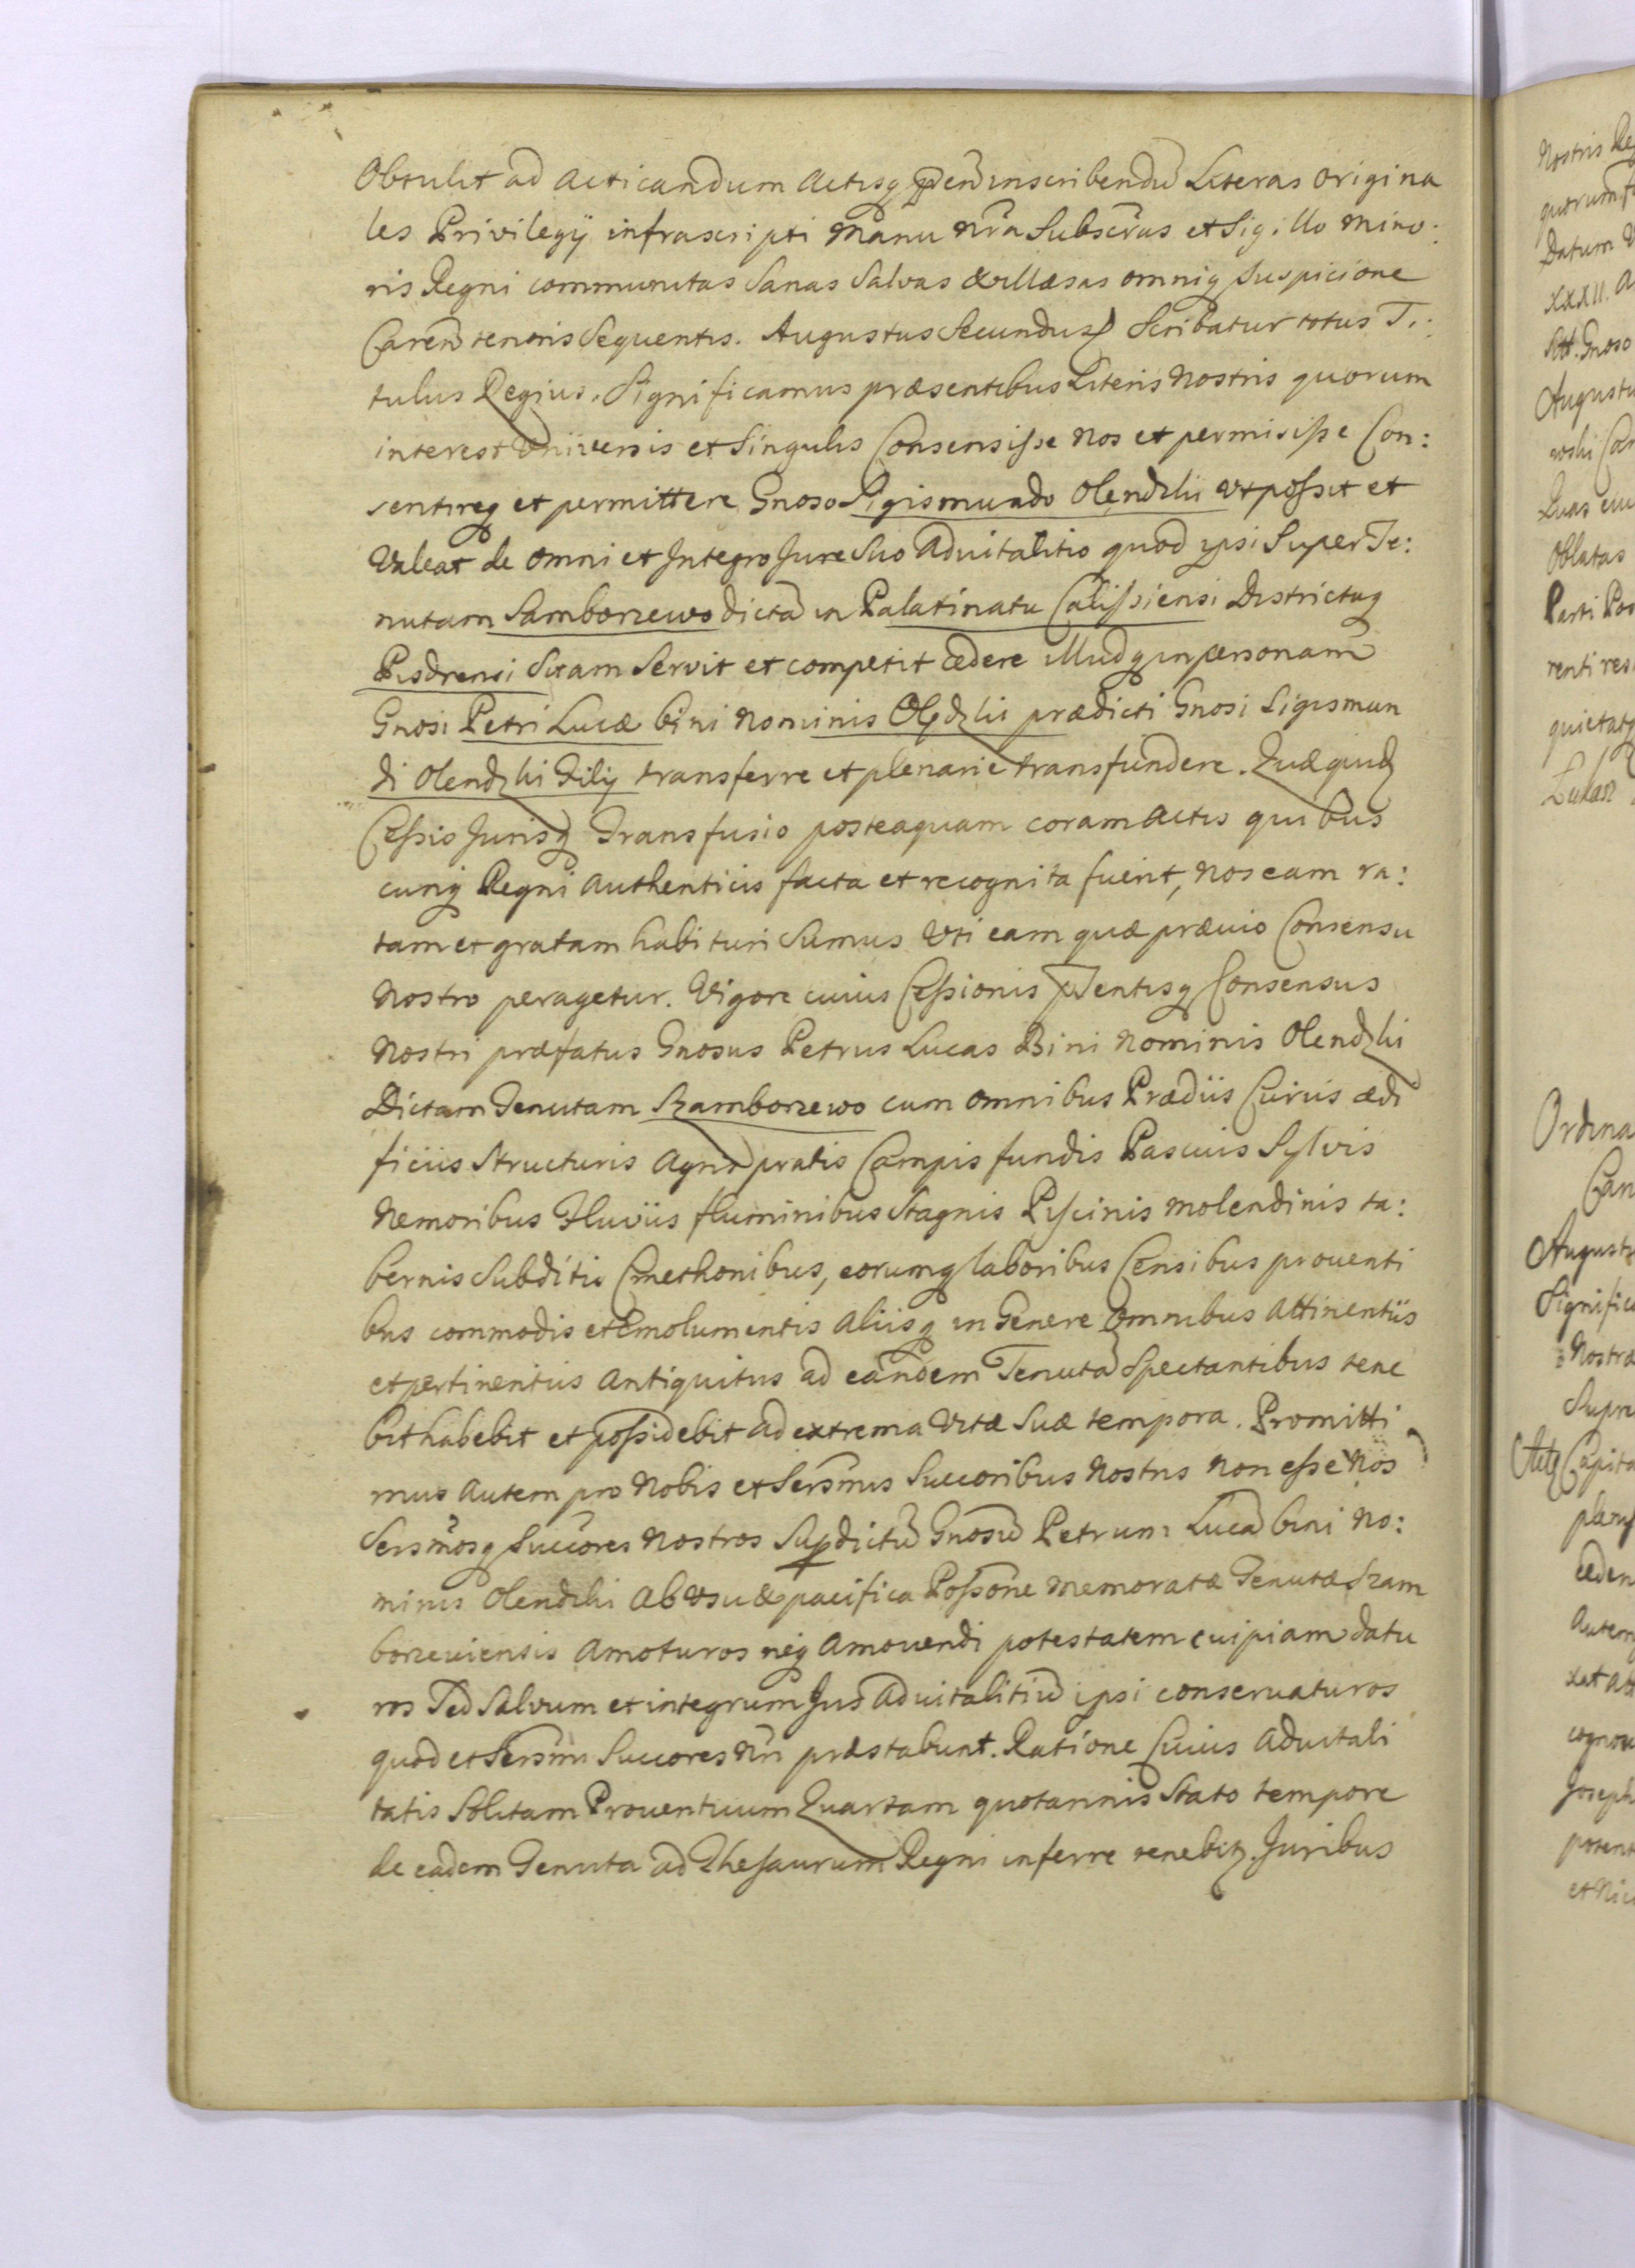 Obtulit ad acticandum actisq pñ inscribendũ Literas origina
les Privilegÿ infrascripti Manu Nrã Subscrãs et Sigillo mino:
ris Regni communitas Sanas Salvas & illæsas omniq suspicione
Careñ tenoris Sequentis. Augustus Secundus Scribatur totus Ti:
tulus Regius. Significamus præsentibus Literis Nostris quorum
interest Universis et Singulis Consensisse Nos et permisisse Con:
sentireq et permittere Gnoso Sigismundo Olendzki Ut possit et
Valeat de omni et Integro Jure Suo Advitalitio quod ipsi Super Te:
nutam Samborzewo dictã in Palatinatu Calissiensi Districtuq
Pisdrensi Sitam Servit et competit cedere illudq in personam
Gnosi Petri Lucæ bini Nominis Olędzki prædicti Gnosi Sigismun
di Olendzki Filij transferre et plenarie transfundere. Quæquid
Cessio Jurisq Transfusio posteaquam coram Actis quibus
cunq Regni Authenticis facta et recognita fuerit, Nos eam ra:
tam et gratam habituri Sumus Uti eam quæ prævio Consensu
Nostro peragetur. Vigore cuius Cessionis pñtisq Consensus
Nostri præfatus Gnosus Petrus Lucas Bini Nominis Olendzki
Dictam Tenutam Szamborzewo cum omnibus Prædiis Curiis ædi
ficiis Structuris Agris pratis Campis fundis Pascuis Sylvis
Nemoribus Fluviis fluminibus Stagnis Piscinis molendinis ta:
bernis Subditis Cmethonibus, eorumq laboribus Censibus proventi
bus commodis et Emolumentis aliisq in Genere Omnibus Attinentiis
et pertinentiis Antiquitus ad eandem Tenutã Spectantibus tene
bit habebit et possidebit ad extrema Vitæ Suæ tempora. Promitti
mus autem pro Nobis et Sersmis Succoribus Nostris Non esse Nos
Sersmosq Succores Nostros Supdictũ Gnosũ Petrum Lucã bini No:
minis Olendzki ab Usu & pacifica Possõne memoratæ Tenutæ Szam
borzeviensis amoturos neq amovendi potestatem cuipiam datu
ros Sed Salvum et integrum Jus Advitalitiũ ipsi conservaturos
quod et Sersmi Succores Nri præstabunt. Ratione Cuius Advitali
tatis Solitam Proventuum Quartam quotannis Stato tempore
de eadem Tenuta ad Thesaurum Regni inferre tenebit. Juribus